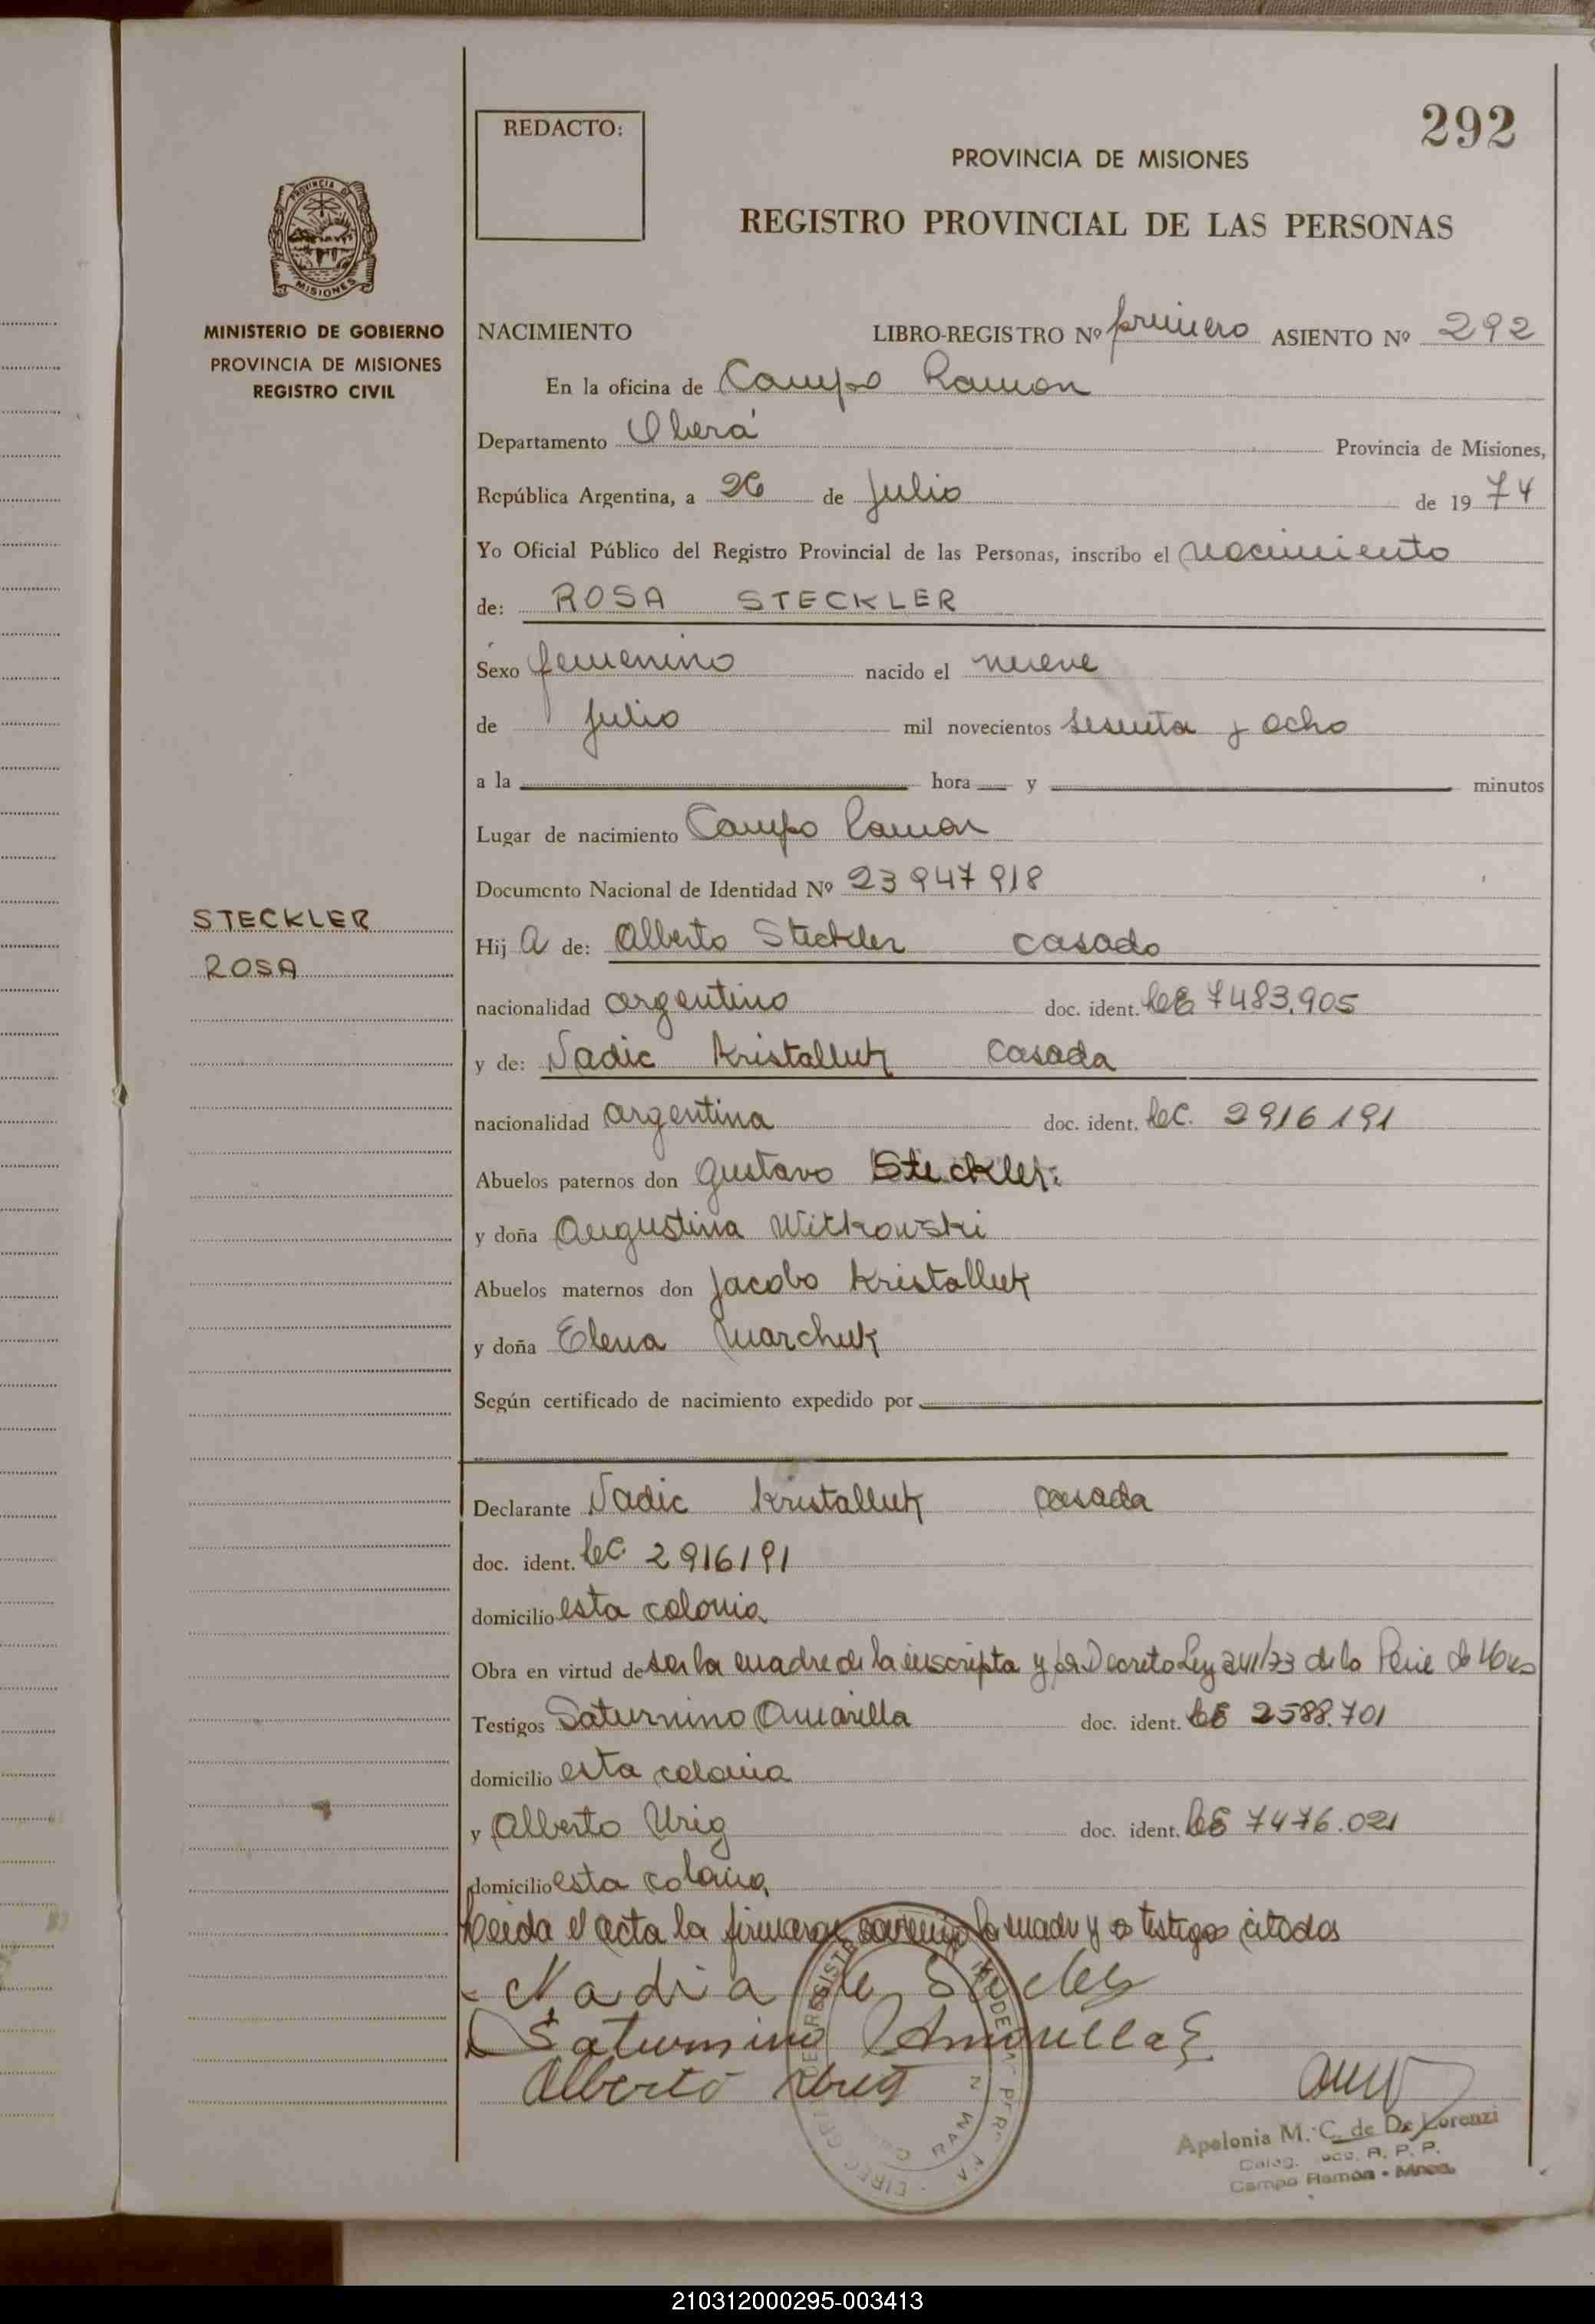 292
REDACTO:
PROVINCIA DE MISIONES
REGISTRO PROVINCIAL DE LAS PERSONAS
MINISTERIO DE GOBIERNO
PROVINCIA DE MISIONES
REGISTRO CIVIL
NACIMIENTO LIBRO-REGISTRO Nº primero ASIENTO Nº 292
En la oficina de Campo Ramon
Departamento Oberá Provincia de Misiones,
República Argentina, a 26 de Julio de 1974
Yo Oficial Público del Registro Provincial de las Personas, inscribo el nacimiento
de: ROSA STECKLER
Sexo femenino nacido el nueve
de Julio mil novecientos sesenta y ocho
a la hora y minutos
Lugar de nacimiento Campo Ramon
Documento Nacional de Identidad Nº 23 947 918
STECKLER
ROSA
Hij a de: Alberto Steckler casado
nacionalidad argentino doc. ident. LE 7483.905
y de: Nadie Kristalluk casada
nacionalidad argentina doc. ident. LC. 2916191
Abuelos paternos don Gustavo Steckler
y doña Augustina Witkowski
Abuelos maternos don Jacobo Kristalluk
y doña Elena Marchuk
Según certificado de nacimiento expedido por
Declarante Nadie Kristalluk casada
doc. ident. LC 2916191
domicilio esta colonia
Obra en virtud de ser la madre de la inscripta y Decreto Ley de la
Testigos Saturnino Amarilla doc. ident. LE 2588.701
domicilio esta colonia
y Alberto Urig doc. ident. LE 7476.021
domicilio esta colonia
Leida el acta la firmaran conmigo la madre y testigos citados
Nadia de Stecler
Saturnino Amarilla
Alberto Urig
Apolonia M. C. de De Lorenzi
R. P. P.
Campo Ramón - Mnes.
210312000295-003413